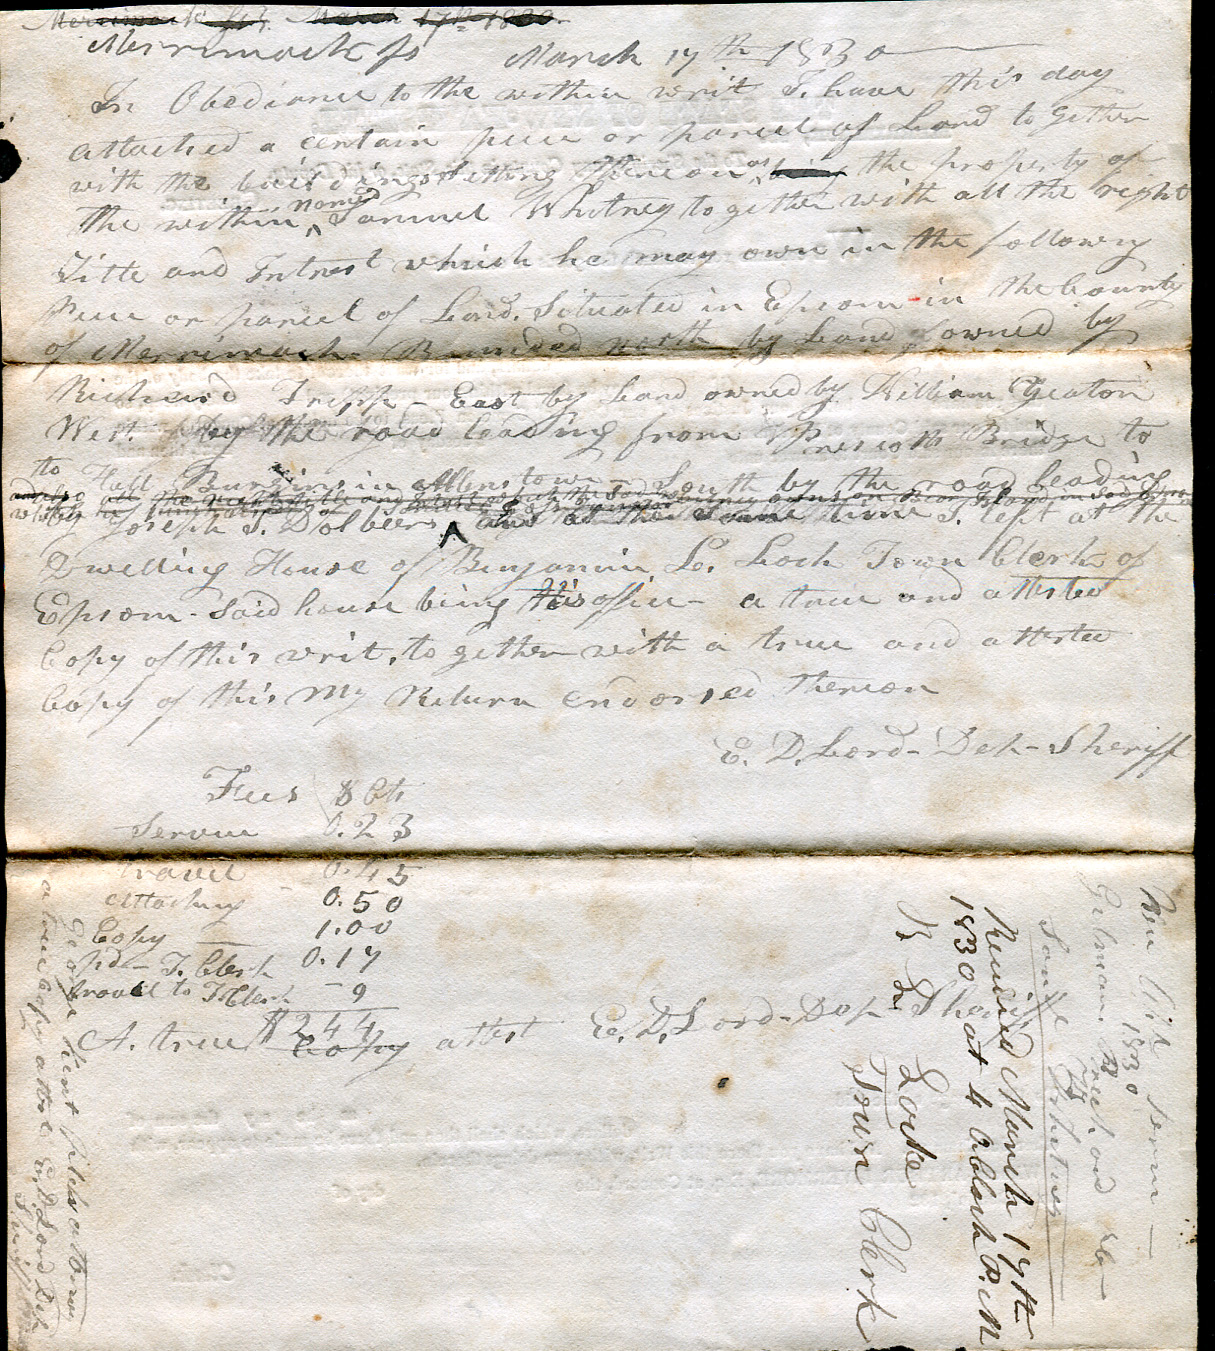 Merrimack ss. March 17th 1830
Merrimack ss March 17th 1830
In Obediance to the within writ I have this day
attached a certain peice or parcel of Land to gether
with the buildings setting thereon as being the property of
the within named Samuel Whitney to gether with all the right
Title and Intrest which he may own in the following
Peice or parcel of Land. Situated in Epsom in the County
of Merrimack. Bounded north by Land owned by
Richard Tripp - East by Land owned by William Yeaton
West. by the road leading from Prescotts Bridge to
to Hall Burgins in Allenstown - South by the road leading
and also all the right title and Intrest which the said
by Joseph S. Dolbeers and at the same time I left at the
Dwelling House of Benjamin L. Lock Town Clerk of
Epsom - Said house being his office - a true and attested
Copy of this writ, to gether with a true and attested
Copy of this My Return endorsed thereon
E. D. Lord - Deh - Sheriff
Fees $ Cts
Service 0.23
travel 0.45
attaching 0.50
Copy 1.00
pd - T. Clerk 0.17
travel to T Clerk - 9
$2 44
A. true Copy attest E. D. Lord - Dep Sheriff
George Kent
a true Copy attest E. D. Lord Deh
Sheriff
Received March 17th
1830 at 4 Oclock P. M
B L Locke
Town Clerk
Term -
1830
Gilman
Samuel Whitney